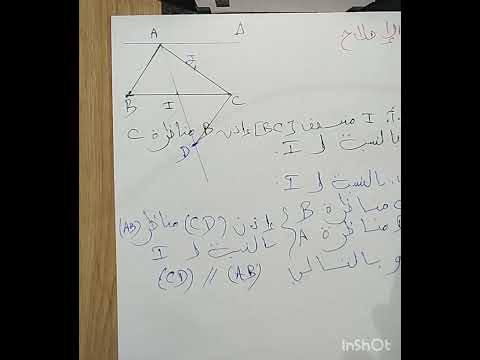 الإصلاح
A
Δ
B
I
C
D
I منتصف [BC] إذن B مناظرة C
بالنسبة لـ I.
بالنسبة لـ I.
مناظرة B
إذن (CD) مناظر (AB)
مناظرة A
بالنسبة لـ I
و بالتالي (AB) // (CD)
InShOt